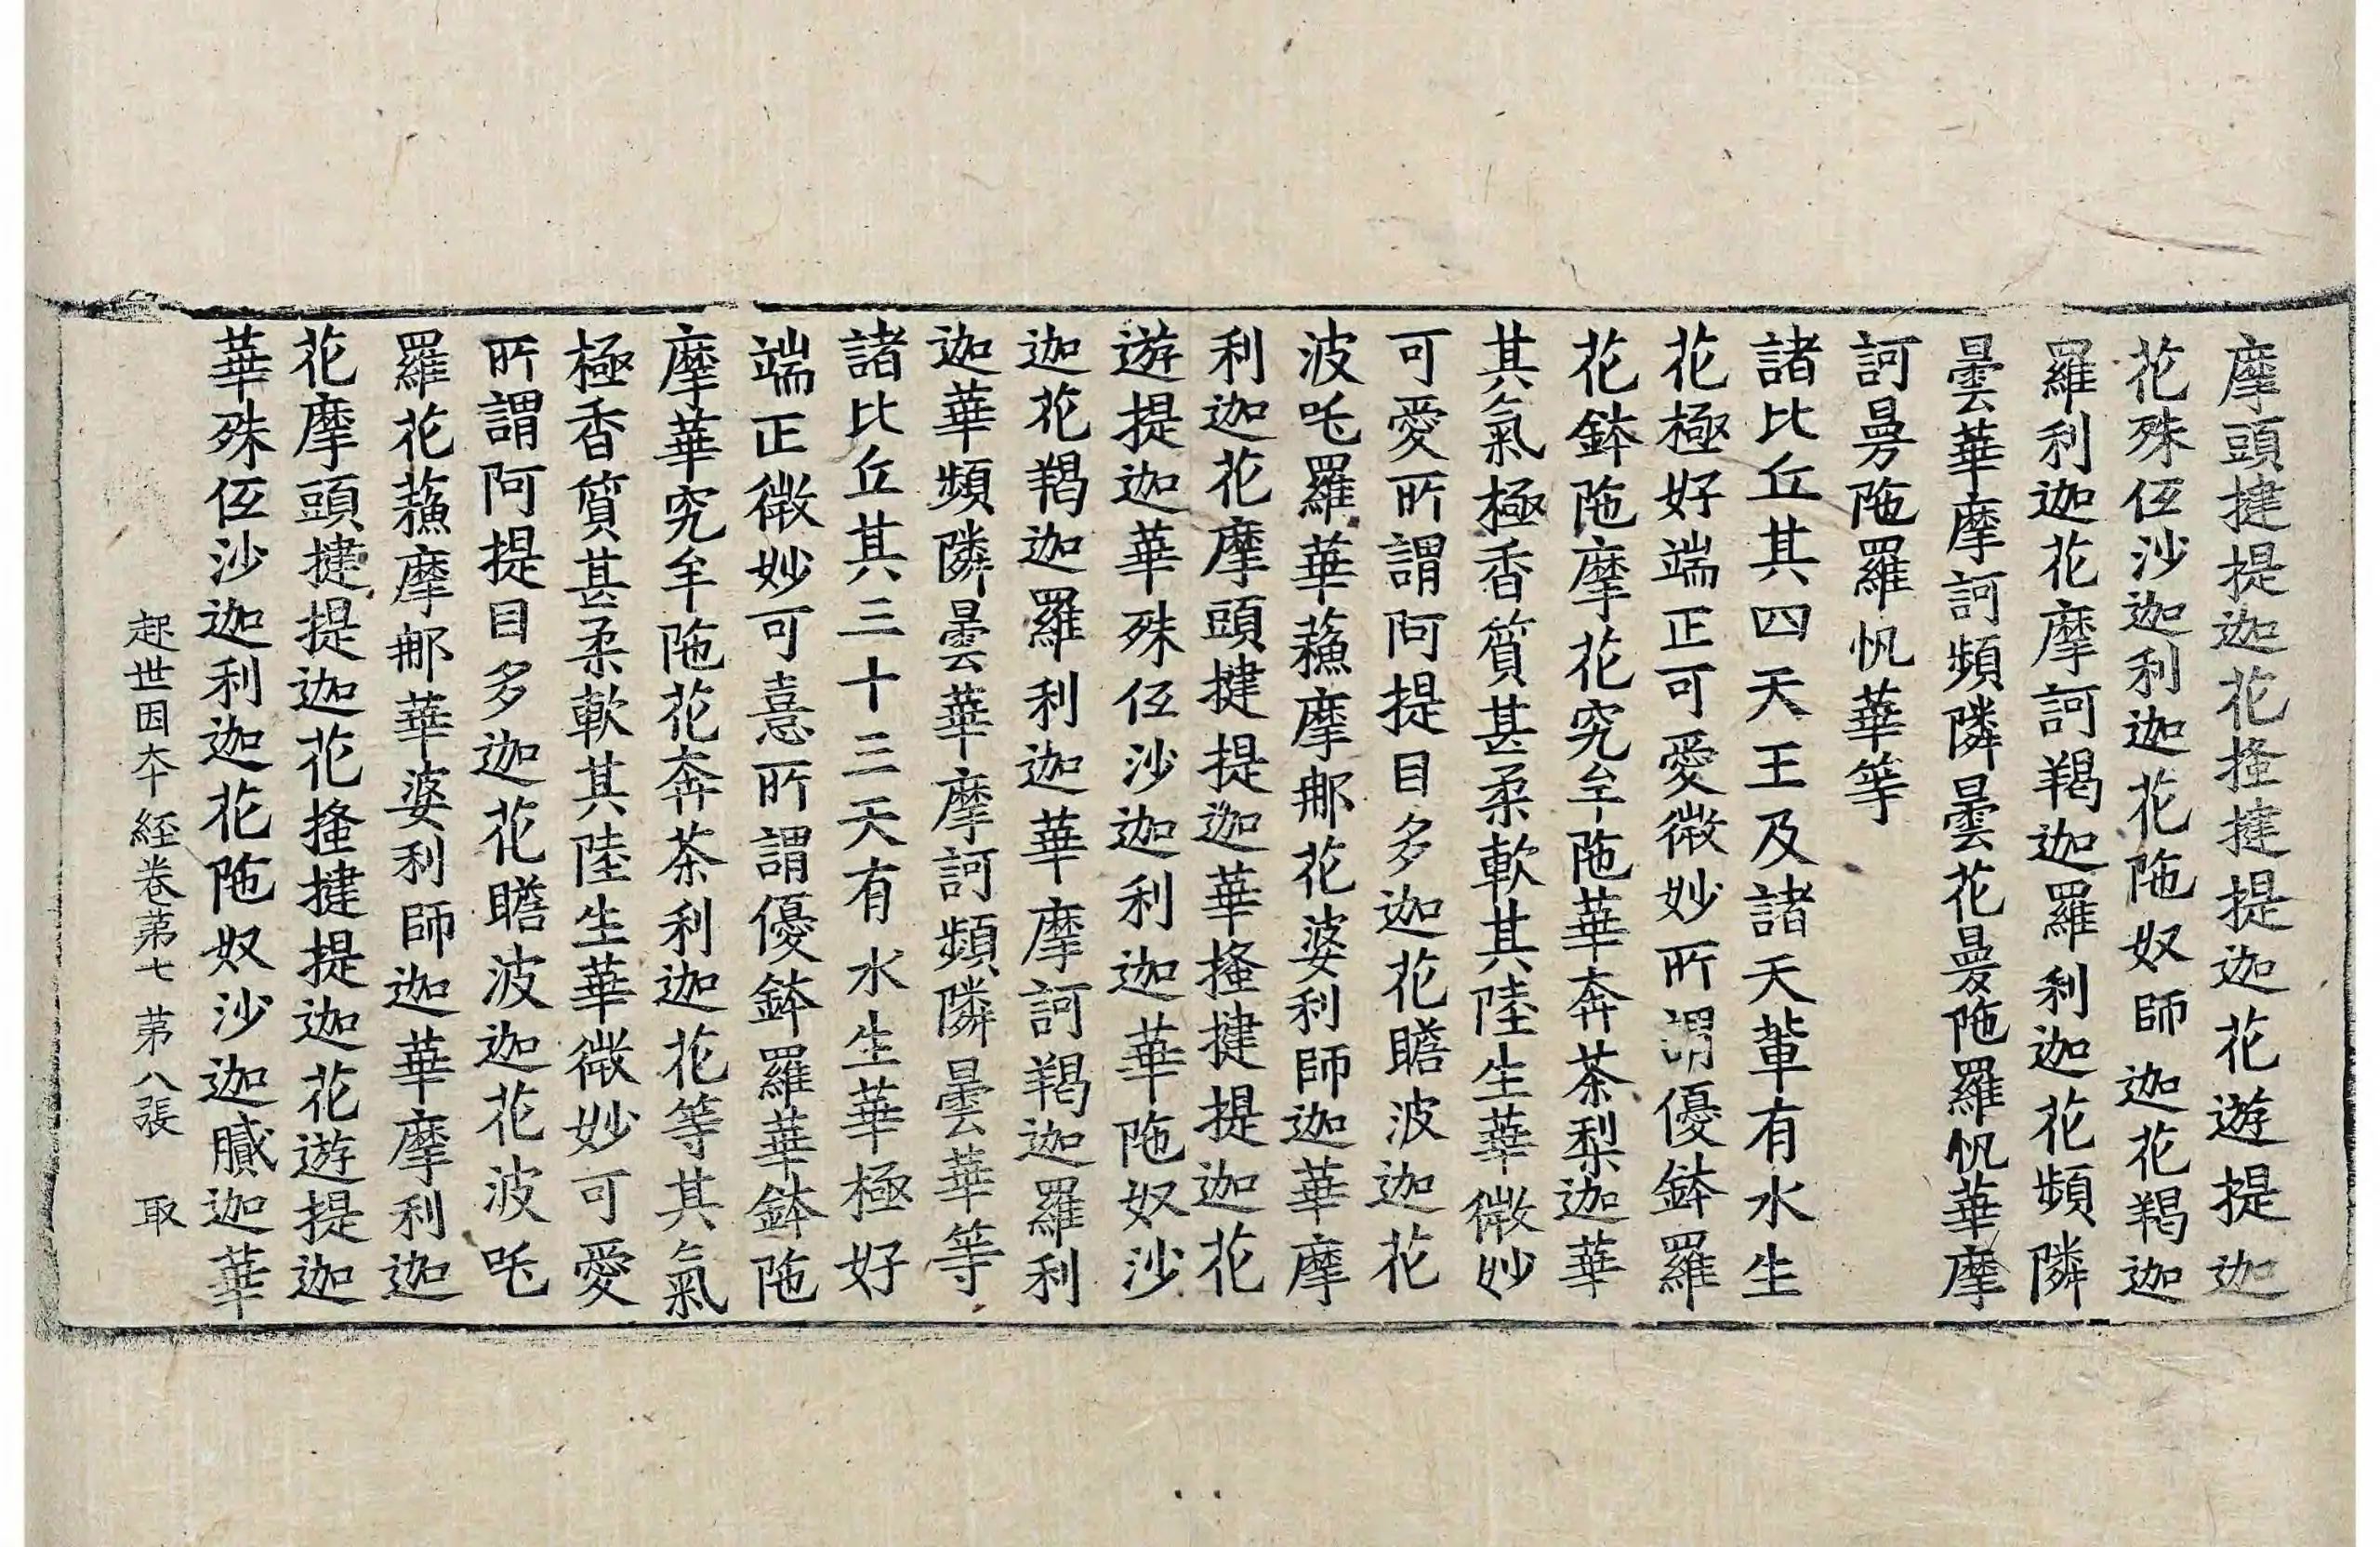 摩頭揵提迦花搔揵提迦花遊提迦
花殊仾沙迦利迦花陁奴師迦花羯迦
羅利迦花摩訶羯迦羅利迦花頻隣
曇華摩訶頻隣曇花曼陁羅帆華摩
訶曼陁羅帆華等
諸比丘其四天王及諸天輩有水生
花極好端正可愛微妙所謂優鉢羅
花鉢陁摩花究牟陁華奔茶梨迦華
其氣極香質甚柔軟其陸生華微妙
可愛所謂阿提目多迦花瞻波迦花
波吒羅華蘓摩郍花婆利師迦華摩
利迦花摩頭揵提迦華搔揵提迦花
遊提迦華殊仾沙迦利迦華陁奴沙
迦花羯迦羅利迦華摩訶羯迦羅利
迦華頻隣曇華摩訶頻隣曇華等
諸比丘其三十三天有水生華極好
端正微妙可憙所謂優鉢羅華鉢陁
摩華究牟陁花奔茶利迦花等其氣
極香質甚柔軟其陸生華微妙可愛
所謂阿提目多迦花瞻波迦花波吒
羅花蘓摩郍華婆利師迦華摩利迦
花摩頭揵提迦花搔揵提迦花遊提迦
華殊仾沙迦利迦花陁奴沙迦膩迦華
起世因夲經卷苐七 苐八張 取